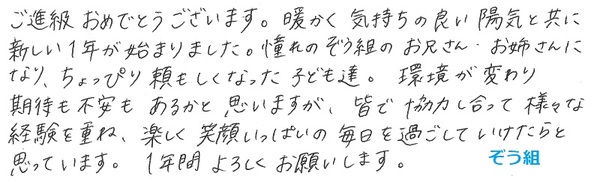 ご進級 おめでとうございます。暖かく 気持ちの良い 陽気と共に
新しい1年が始まりました。憧れのぞう組のお兄さん・お姉さんに
なり、ちょっぴり 頼もしくなった 子ども達。 環境が 変わり
期待も 不安も あるかと 思いますが、皆で 協力し合って 様々な
経験を重ね、楽しく 笑顔いっぱいの 毎日を過ごしていけたらと
思っています。 1年間 よろしくお願いします。 ぞう組